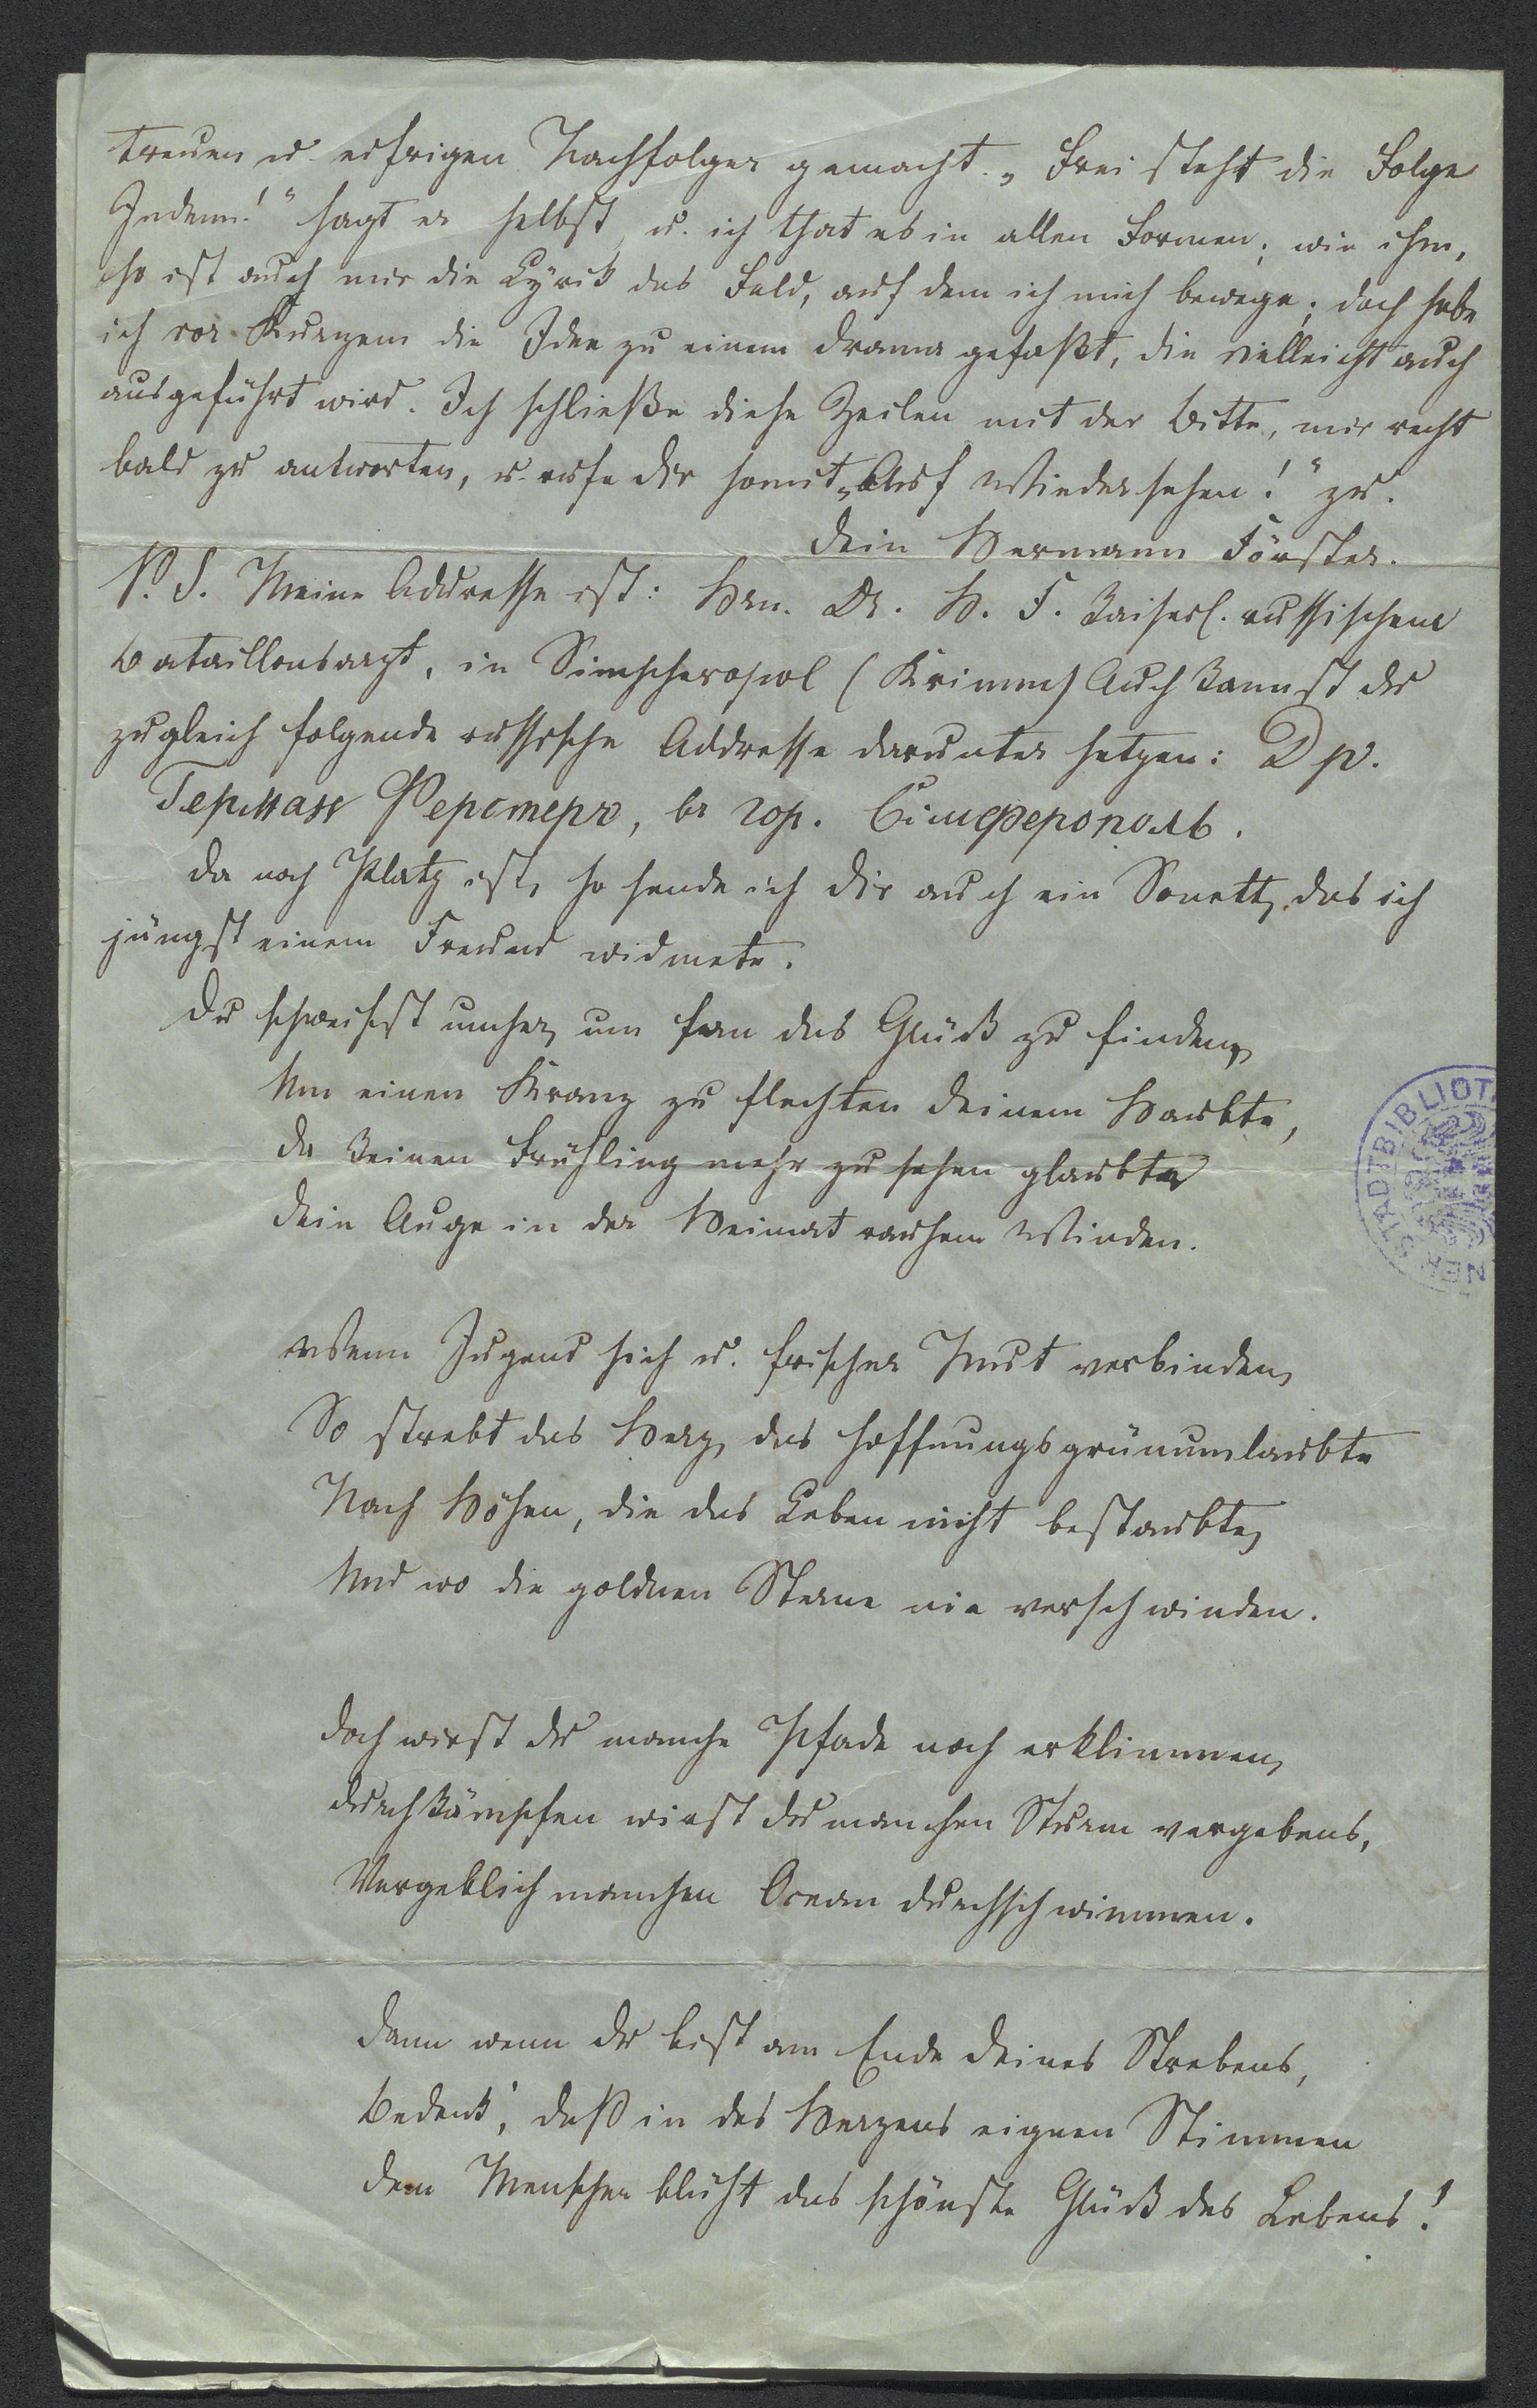 treuen u. eifrigen Nachfolger gemacht. „Frei steht die Folge
Jedem!“ sagt er selbst, u. ich that es in allen Formen; wie ihm,
so ist auch mir die Lyrik das Feld, auf dem ich mich bewege; doch habe
ich vor Kurzem die Idee zu einem Drama gefaßt, die vielleicht auch
ausgeführt wird. Ich schließe diese Zeilen mit der Bitte, mir recht
bald zu antworten, u. rufe dir somit „Auf Wiedersehen!“ zu.
Dein Hermann Förster.
P. S. Meine Addresse ist: Hrn. Dr. H. F. Kaiserl. russischem
Bataillonsarzt, in Simpheropol (Krimm) Auch kannst du
zugleich folgende russische Addresse darunter setzen: Др.
Герман Ферстеръ, въ гор. Симферополь.
Da noch Platz ist, so sende ich dir auch ein Sonett, das ich
jüngst einem Freund widmete.
Du schweifst umher, um fern das Glück zu finden,
Um einen Kranz zu flechten deinem Haubte,
Da keinen Frühling mehr zu sehen glaubte
Dein Auge in der Heimat rauhem Winden.
Wenn Jugend sich u. frischer Mut verbinden,
So strebt das Herz, das hoffnungsgrünumlaubte
Nach Höhen, die das Leben nicht bestaubte,
Und wo die goldnen Sterne nie verschwinden.
Doch wirst du manche Pfade noch erklimmen,
Durchkämpfen wirst du manchen Sturm vergebens,
Vergeblich manchen Ocean durchschwimmen.
Dann wenn du bist am Ende deines Strebens,
Bedenk', daß in des Herzens eignen Stimmen
Dem Menschen blüht das schönste Glück des Lebens!
STADTBIBLIOT
NER